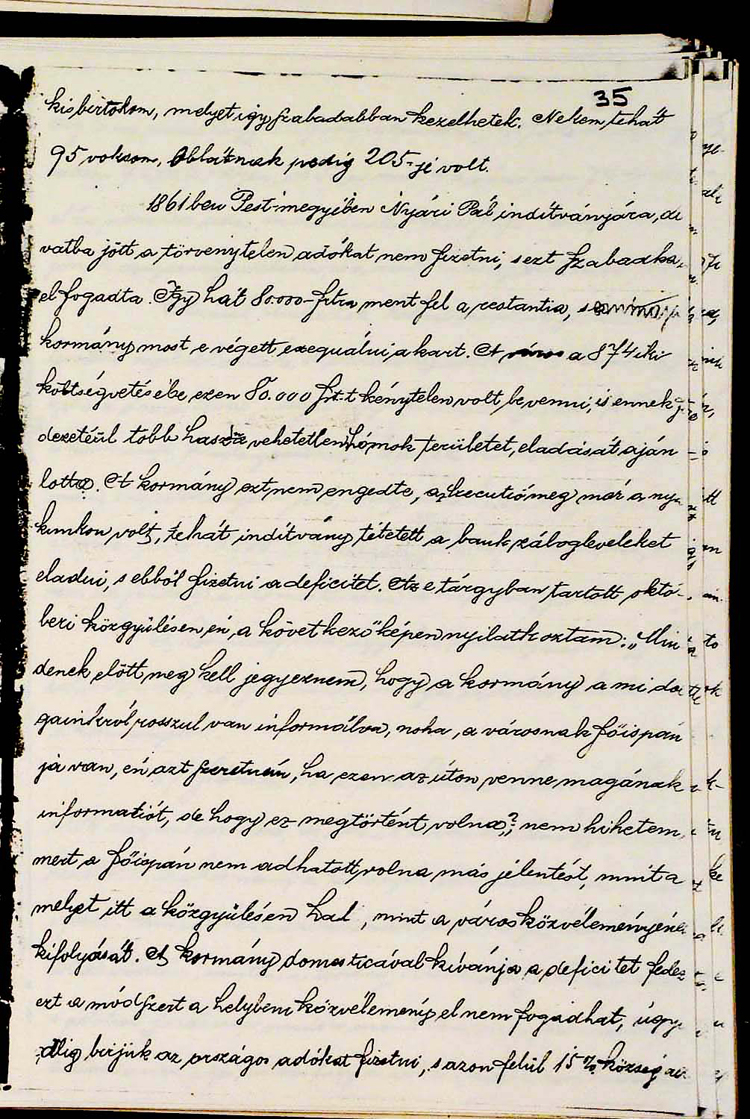 35
kisbirtokom, melyet így szabadabban kezelhetek. Nekem tehát
95 voksom, Oblátnak pedig 205-je volt.
1861ben Pestmegyében Nyári Pál indítványára, di
vatba jött a törvénytelen adókat nem fizetni, s ezt Szabadka,
elfogadta. Így hát 80.000-frtra ment fel a restantia, s
kormány most e végett exequálni akart. A a 874iki
költségvetésébe ezen 80.000 frt.t kénytelen volt, bevenni, is ennek fe
dezetéül több hasz vehetetlen homok területet, eladását aján
lotta. A kormány ezt nem engedte, a executió meg már a nya
kunkon volt, tehát indítvány tétetett a bank zálogleveleket
eladni, s ebből fizetni a deficitet. Az e tárgyban tartott októ-
beri közgyűlésen én, a következőképen nyilatkoztam: „Min
denek előtt meg kell jegyeznem, hogy a kormány a mi dol
gainkról rosszul van informálva, noha, a városnak főispán
ja van, én azt szeretném, ha ezen az úton venne magának
informatiót, de hogy ez megtörtént volna?, nem hihetem,
mert a főispán nem adhatott volna más jelentést, mint a
melyet itt a közgyűlésen hal, mint a város közvéleményéne
kifolyását. A kormány domesticával kívánja a deficitet fedez
ezt a módszert a helybeni közvélemény el nem fogadhat, úgy
alig birjuk az országos adókat fizetni, s azon felül 15 % község